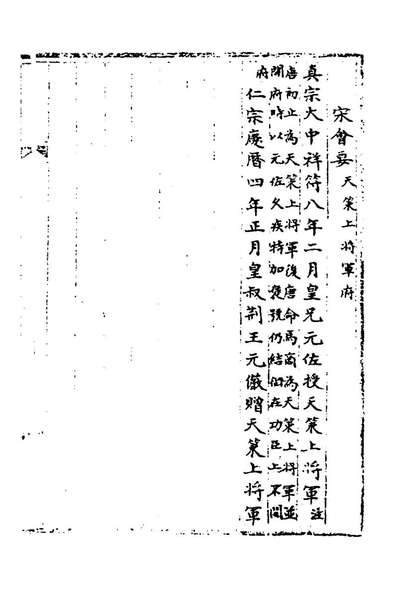 宋會要 天策上將軍府
真宗大中祥符八年二月皇兄元佐授天策上將軍注
唐初止為天策上將軍後唐命馬商為天策上將軍並
開府時以元佐久疾特加襃號仍結銜在功臣上不開
府
仁宗慶曆四年正月皇叔荆王元儼贈天策上將軍